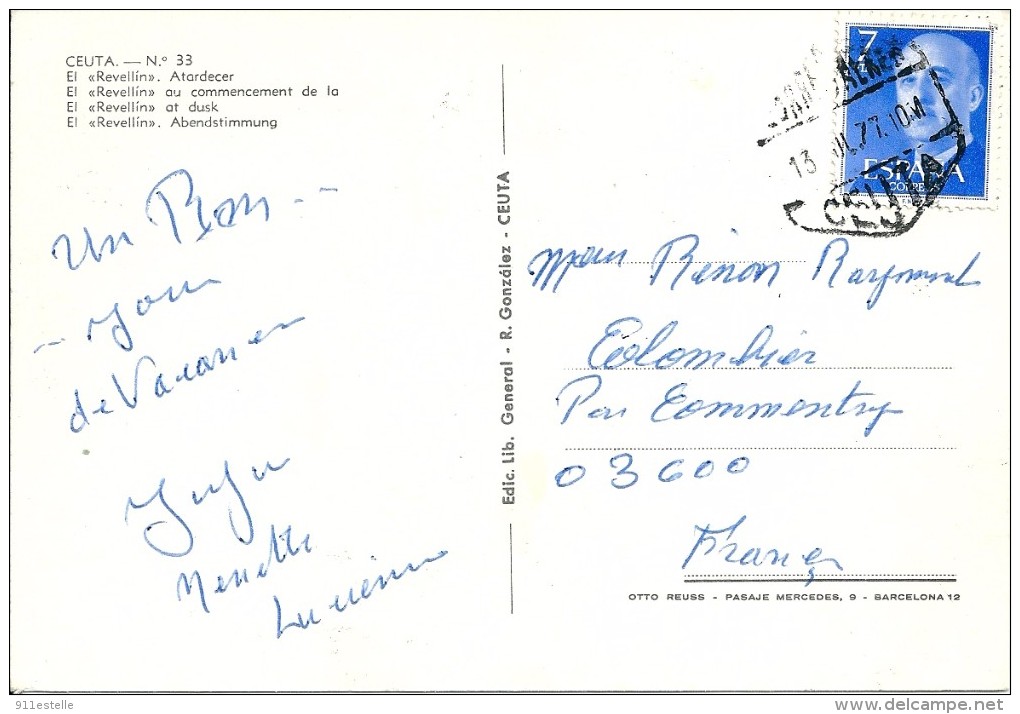 CEUTA. — N.º 33
El «Revellín». Atardecer
El «Revellín» au commencement de la
El «Revellín» at dusk
El «Revellín». Abendstimmung
Un Bon
de Vacances
Lucienne
Edic. Lib. General - R. González - CEUTA
7
ESPAÑA
CORREOS
13 JUL 77. 10M
CEUTA
Raymond
Colombier
Par Commentry
03600
France
OTTO REUSS - PASAJE MERCEDES, 9 - BARCELONA 12
911estelle
delcampe.net